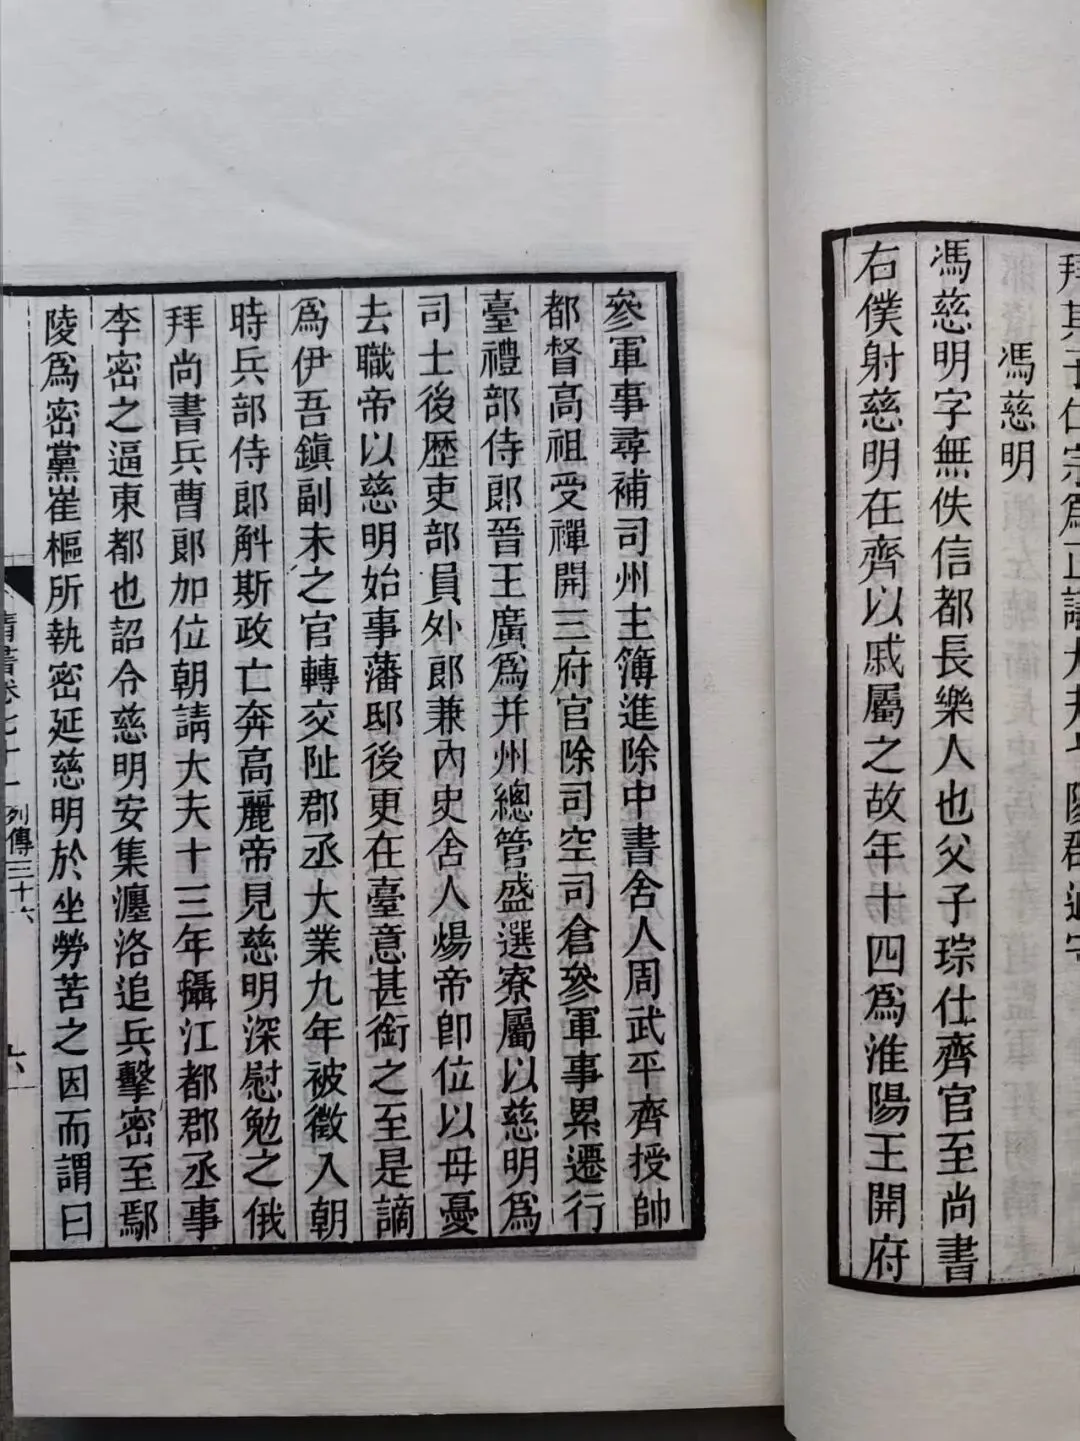 拜其子仁宗爲正議大夫
馮慈明
馮慈明字無佚信都長樂人也父子琮仕齊官至尚書
右僕射慈明在齊以戚屬之故年十四爲淮陽王開府
參軍事尋補司州主簿進除中書舍人周武平齊授帥
都督高祖受禪開三府官除司空司倉參軍事累遷行
臺禮部侍郎晉王廣爲并州總管盛選寮屬以慈明爲
司士後歷吏部員外郎兼內史舍人煬帝即位以母憂
去職帝以慈明始事藩邸後更在臺意甚銜之至是謫
爲伊吾鎮副未之官轉交阯郡丞大業九年被徵入朝
時兵部侍郎斛斯政亡奔高麗帝見慈明深慰勉之俄
拜尚書兵曹郎加位朝請大夫十三年攝江都郡丞事
李密之逼東都也詔令慈明安集瀍洛追兵擊密至鄢
陵爲密黨崔樞所執密延慈明於坐勞苦之因而謂曰
隋書卷七十一 列傳三十六
六